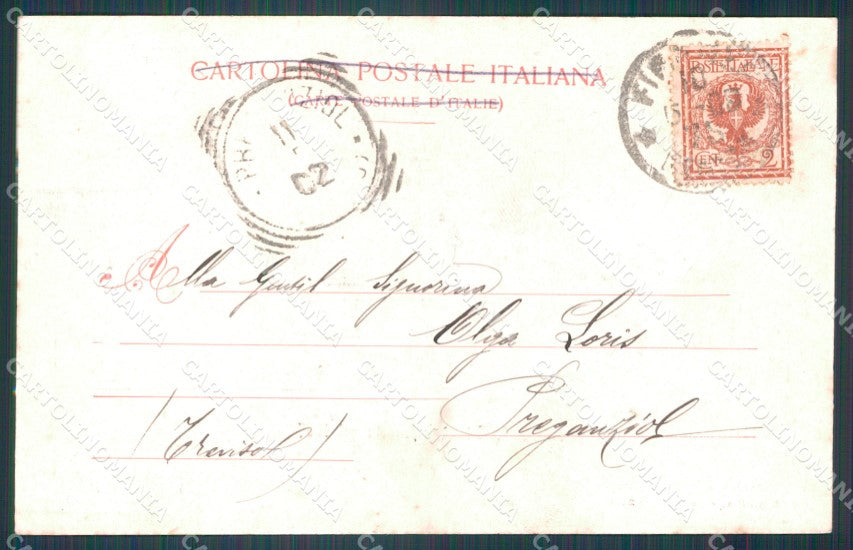 CARTOLINA POSTALE ITALIANA
(CARTE POSTALE D'ITALIE)
POSTE ITALIANE
CENT. 2
11
02
Alla Gentil Signorina
Olga Loris
Preganziol
(Treviso)
CARTOLINOMANIA